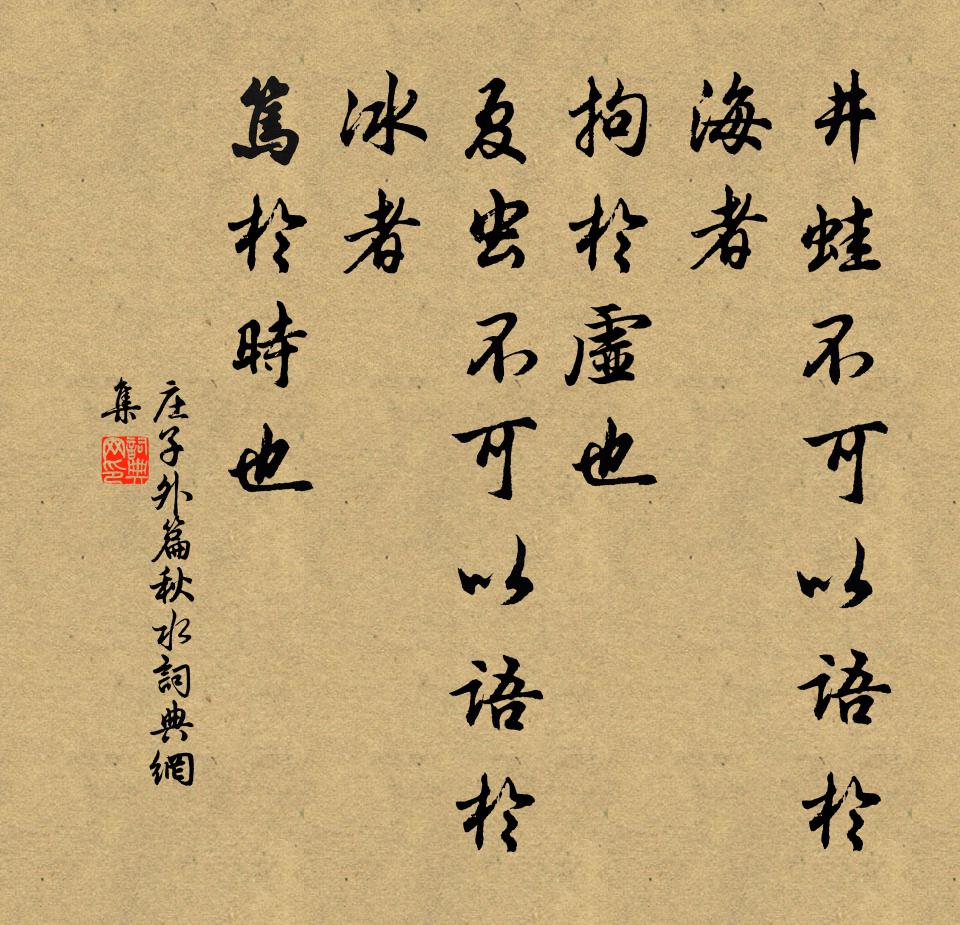 井蛙不可以语於
海者
拘於虛也
夏虫不可以语於
冰者
篤於時也
庄子外篇秋水詞典網
集
詞典
网印